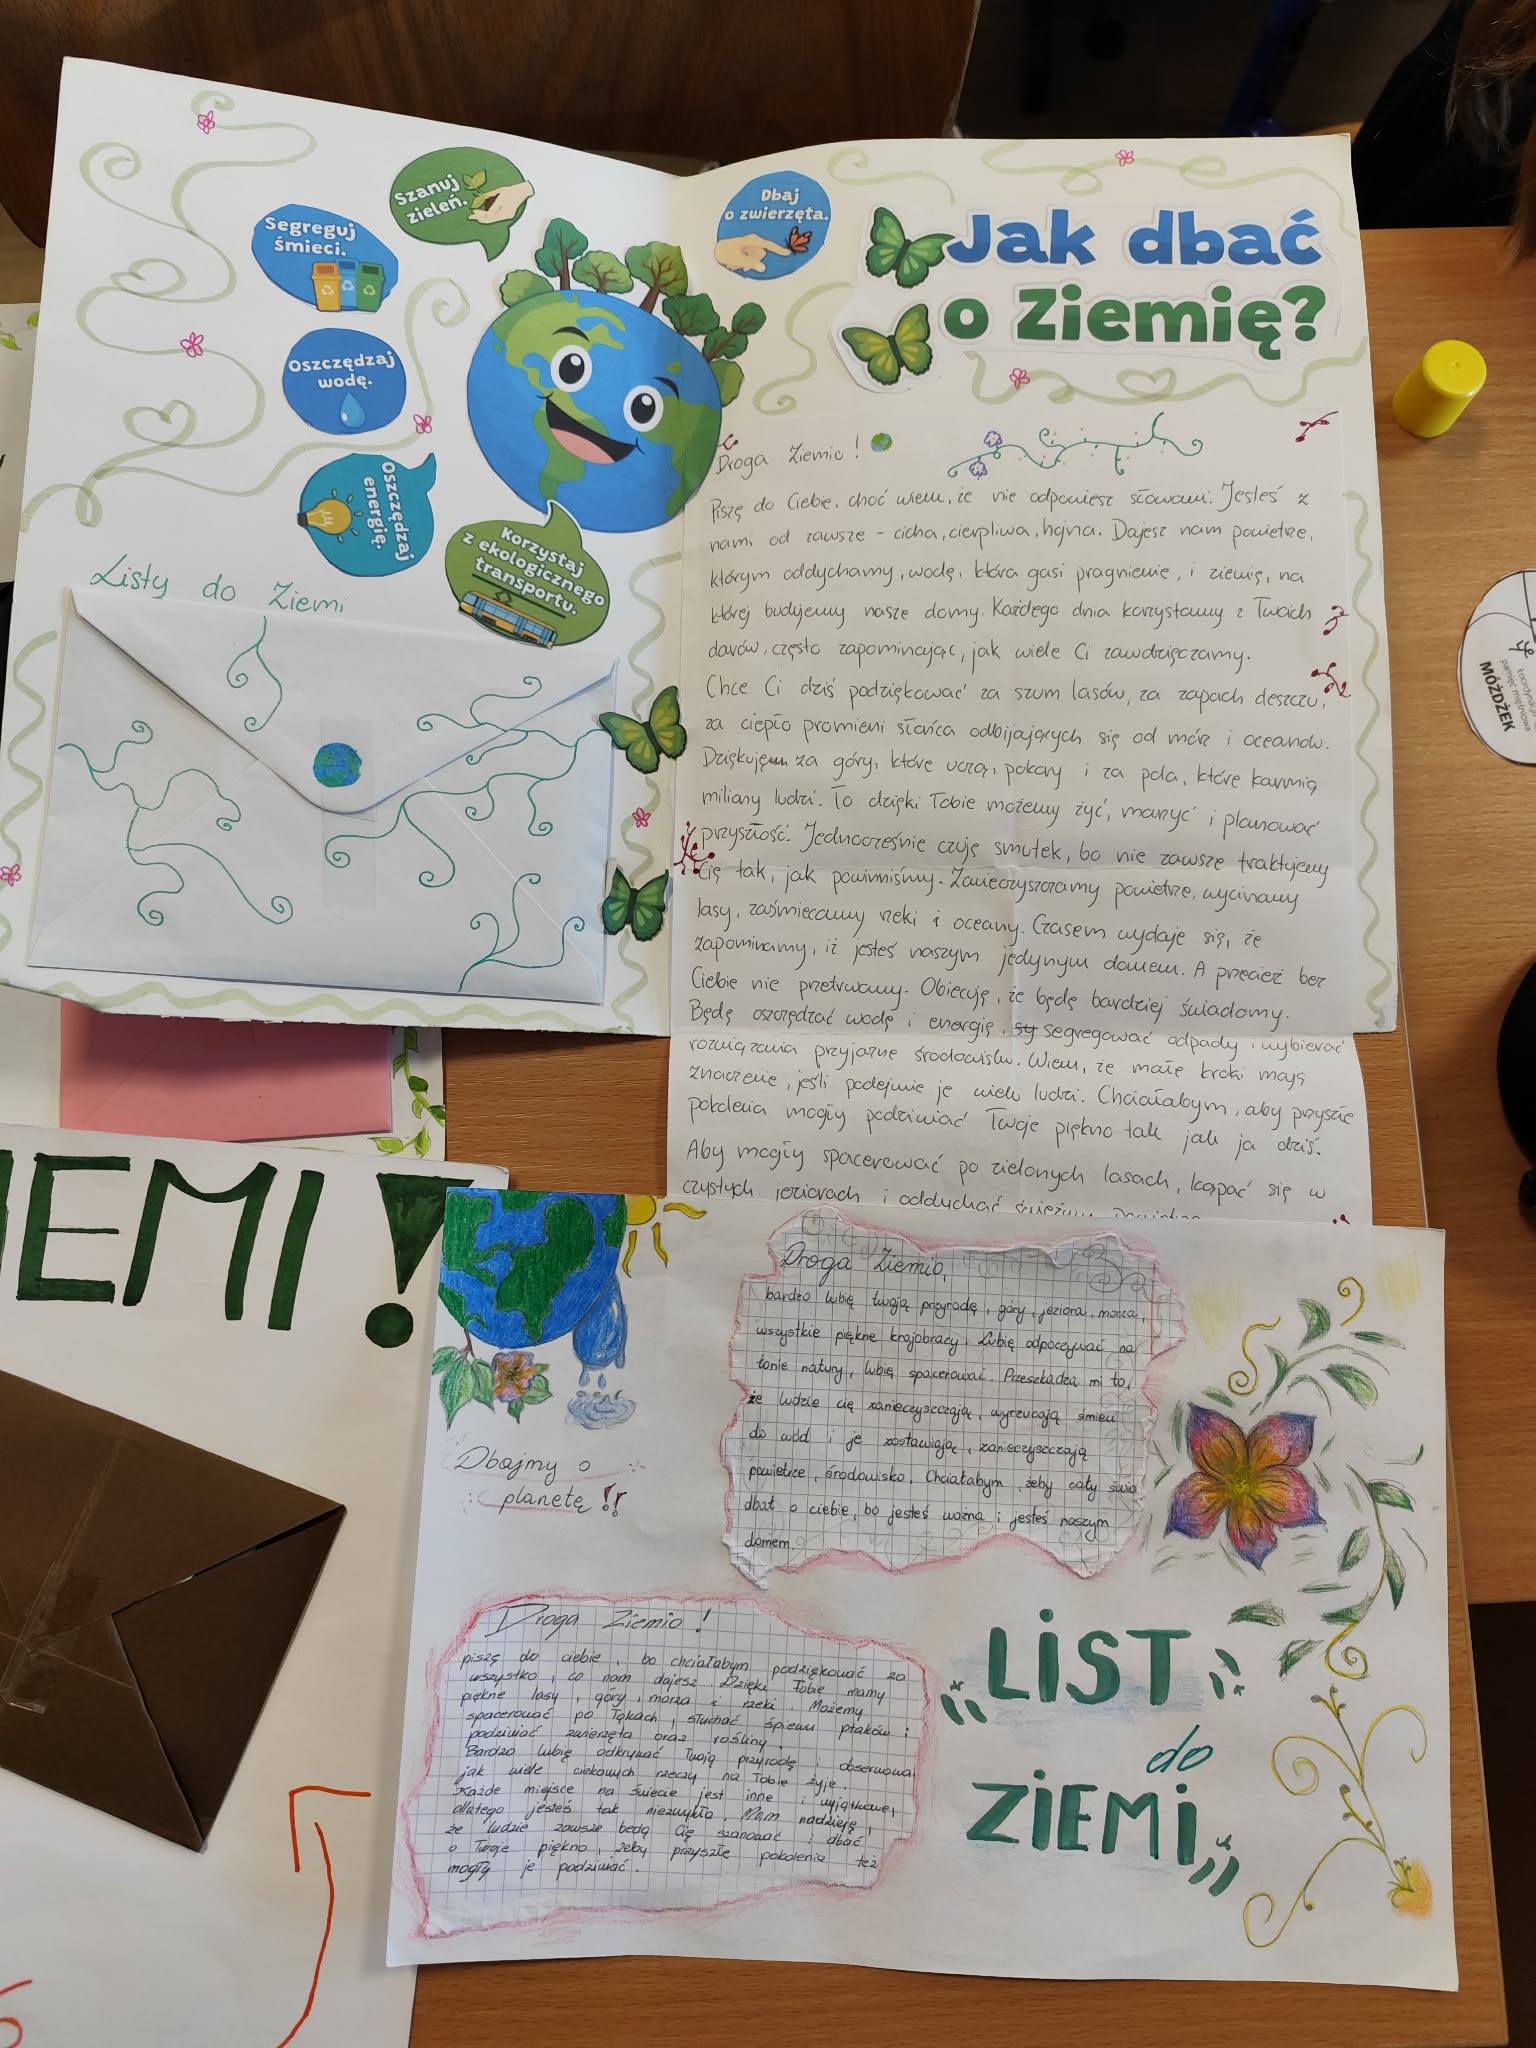 Szanuj
zieleń.
Segreguj
śmieci.
Oszczędzaj
wodę.
Oszczędzaj
energię.
Korzystaj
z ekologicznego
transportu.
Dbaj
o zwierzęta.
Jak dbać
o Ziemię?
Listy do Ziemi
Droga Ziemio!
Piszę do Ciebie, choć wiem, że nie odpowiesz słowami. Jesteś z
nami od zawsze - cicha, cierpliwa, hojna. Dajesz nam powietrze,
którym oddychamy, wodę, która gasi pragnienie, i ziemię, na
której budujemy nasze domy. Każdego dnia korzystamy z Twoich
darów, często zapominając, jak wiele Ci zawdzięczamy.
Chce Ci dziś podziękować za szum lasów, za zapach deszczu,
za ciepło promieni słońca odbijających się od mórz i oceanów.
Dziękujemy za góry, które uczą, pokory i za pola, które karmią
miliony ludzi. To dzięki Tobie możemy żyć, marzyć i planować
przyszłość. Jednocześnie czuję smutek, bo nie zawsze traktujemy
Cię tak, jak powinniśmy. Zanieczyszczamy powietrze, wycinamy
lasy, zaśmiecamy rzeki i oceany. Czasem wydaje się, że
zapominamy, iż jesteś naszym jedynym domem. A przecież bez
Ciebie nie przetrwamy. Obiecuję, że będę bardziej świadomy.
Będę oszczędzać wodę i energię, sy segregować odpady i wybierać
rozwiązania przyjazne środowisku. Wiem, że małe kroki mają
znaczenie, jeśli podejmie je wielu ludzi. Chciałabym, aby przyszłe
pokolenia mogły podziwiać Twoje piękno tak jak ja dziś.
Aby mogły spacerować po zielonych lasach, kąpać się w
czystych jeziorach i oddychać świeżym powietrzem
IEMI!
Droga Ziemio,
bardzo lubię twoją przyrodę, góry, jeziora, morza,
wszystkie piękne krajobracy. Lubię odpoczywać na
łonie natury, lubię spacerować. Przeszkadza mi to,
że ludzie cię zanieczyszczają, wyrzucają śmieci
do wód i je zostawiają, zanieczyszczają
powietrze, środowisko. Chciałabym, żeby cały świa
dbał o ciebie, bo jesteś ważna i jesteś naszym
domem.
Dbajmy o
planetę!!
Droga Ziemio!
piszę do ciebie, bo chciałabym podziękować za
wszystko, co nam dajesz. Dzięki Tobie mamy
piękne lasy, góry, morza i rzeki. Możemy
spacerować po łąkach, słuchać śpiewu ptaków i
podziwiać zwierzęta oraz rośliny.
Bardzo lubię odkrywać Twoją przyrodę i obserwować
jak wiele ciekawych rzeczy na Tobie żyje.
Każde miejsce na świecie jest inne i wyjątkowe,
dlatego jesteś tak niezwykła. Mam nadzieję,
że ludzie zawsze będą Cię szanować i dbać
o Twoje piękno, żeby przyszłe pokolenia też
mogły je podziwiać.
„LiST
do
ZiEMi”
koordynacja
pamięć mięśniowa
MÓŻDŻEK